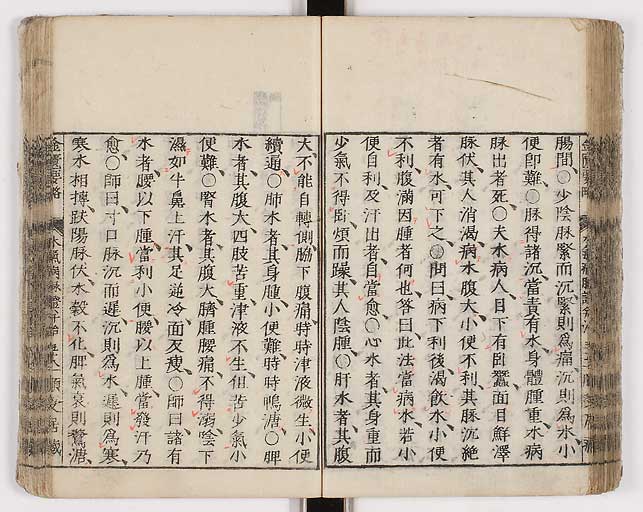 腸間○少陰脉緊而沉緊則爲痛沉則爲水小
便卽難○脉得諸沉當責有水身體腫重水病
脉出者死○夫水病人目下有臥蠶面目鮮澤
脉伏其人消渴病水腹大小便不利其脉沉絶
者有水可下之○問曰病下利後渴飲水小便
不利腹滿因腫者何也答曰此法當病水若小
便自利及汗出者自當愈○心水者其身重而
少氣不得臥煩而躁其人陰腫○肝水者其腹
大不能自轉側脇下腹痛時時津液微生小便
續通○肺水者其身腫小便難時時鴨溏○脾
水者其腹大四肢苦重津液不生但苦少氣小
便難○腎水者其腹大臍腫腰痛不得溺陰下
濕如牛鼻上汗其足逆冷面反瘦○師曰諸有
水者腰以下腫當利小便腰以上腫當發汗乃
愈○師曰寸口脉沉而遲沉則爲水遲則爲寒
寒水相摶趺陽脉伏水穀不化脾氣衰則鶩溏
金匱要略 水氣病脉證并治